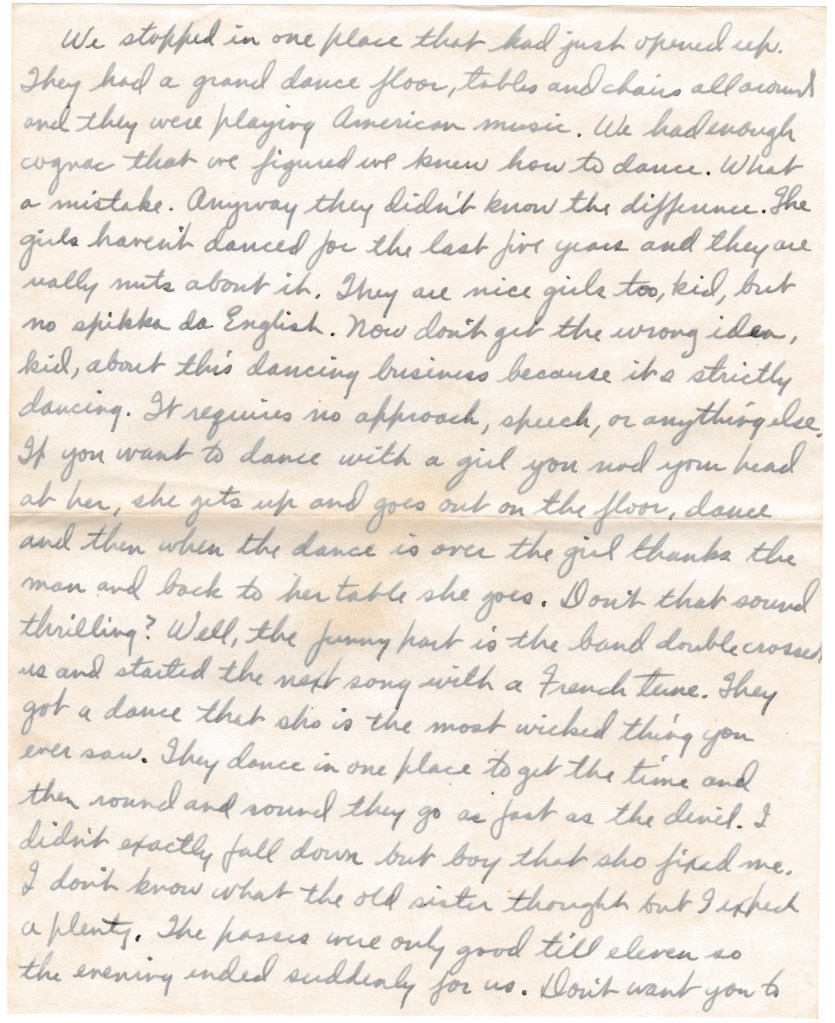 We stopped in one place that had just opened up.
They had a grand dance floor, tables and chairs all around
and they were playing American music. We had enough
cognac that we figured we knew how to dance. What
a mistake. Anyway they didn't know the difference. The
girls haven't danced for the last five years and they are
really nuts about it. They are nice girls too, kid, but
no spikka da English. Now don't get the wrong idea,
kid, about this dancing business because its strictly
dancing. It requires no approach, speech, or anything else.
If you want to dance with a girl you nod your head
at her, she gets up and goes out on the floor, dance
and then when the dance is over the girl thanks the
man and back to her table she goes. Don't that sound
thrilling? Well, the funny part is the band doublecrossed
us and started the next song with a French tune. They
got a dance that sho is the most wicked thing you
ever saw. They dance in one place to get the time and
then round and round they go as fast as the devil. I
didn't exactly fall down but boy that sho fixed me.
I don't know what the old sister thought but I expect
a plenty. The passes were only good till eleven so
the evening ended suddenly for us. Don't want you to